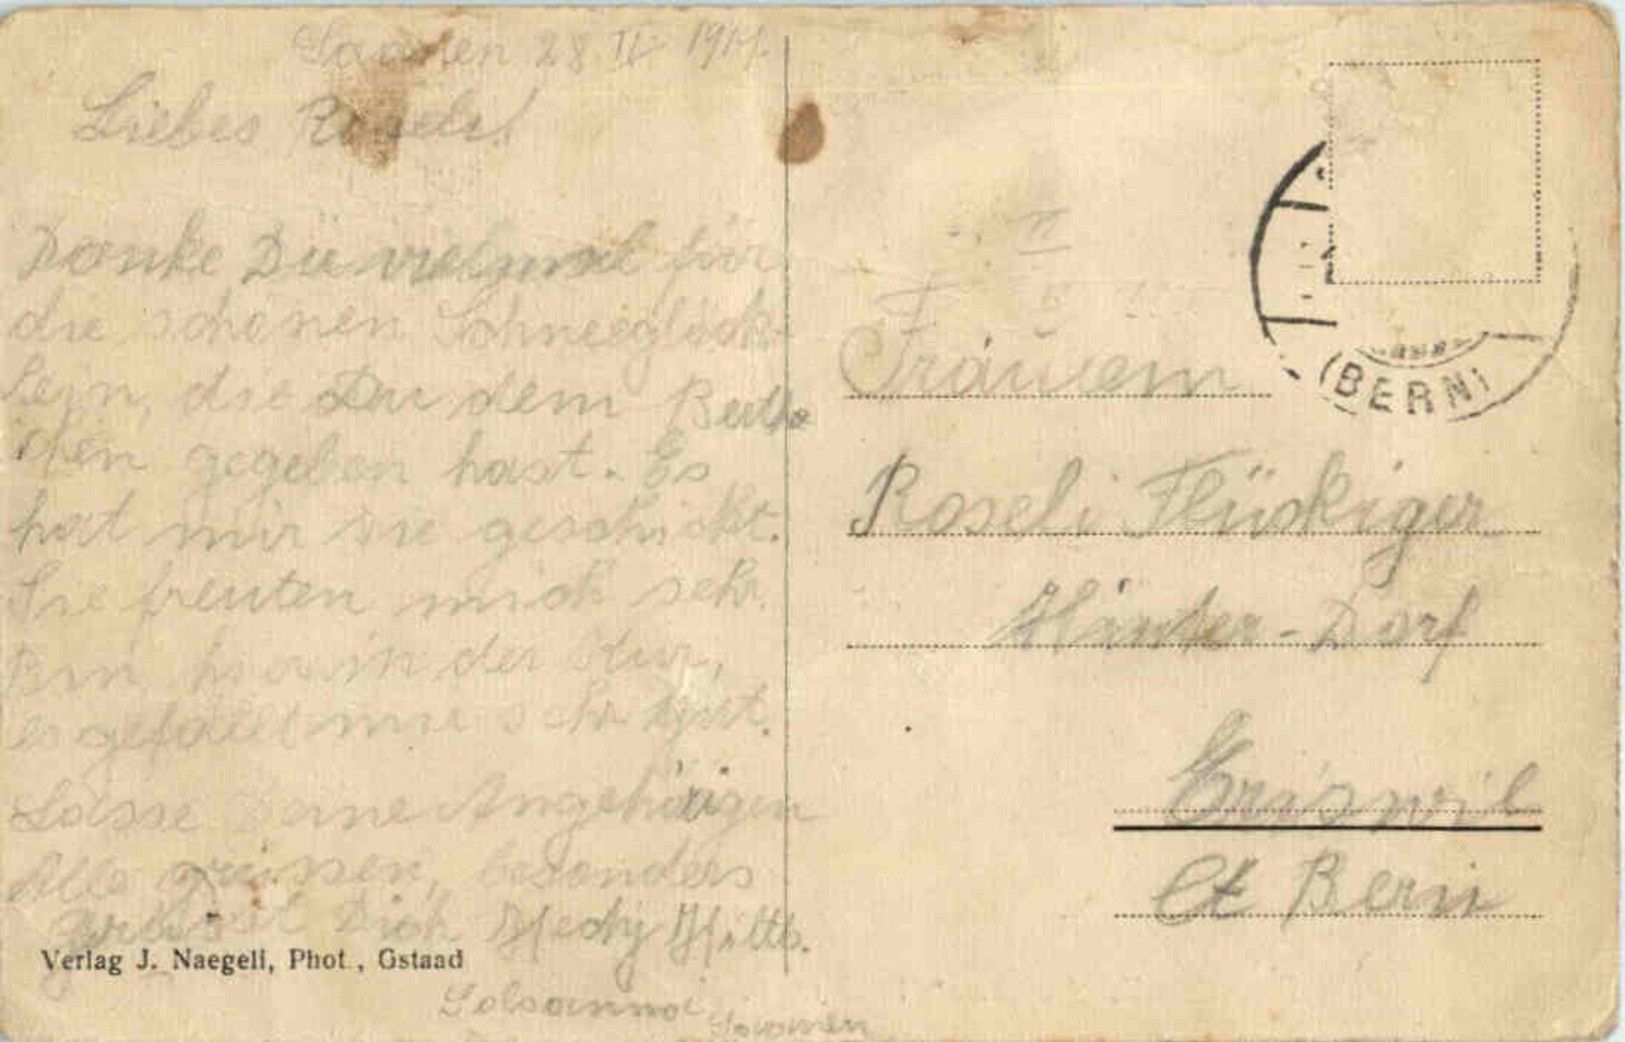 Saanen 28 II 1917.
Liebes Roseli!
Danke Dir vielmal für
die schönen Schneeglöck-
lein, die Du dem Berth
chen gegeben hast. Es
hat mir sie geschickt.
Sie freuten mich sehr.
Bin hier in der
es gefällt mir sehr gut.
Lasse Deine Angehörigen
Alle grüssen, besonders
grüsst Dich Hedy
Saanen
Verlag J. Naegeli, Phot., Gstaad
(BERN)
Fräulein
Roseli Flückiger
Hinter-Dorf
Eriswil
Ct Bern